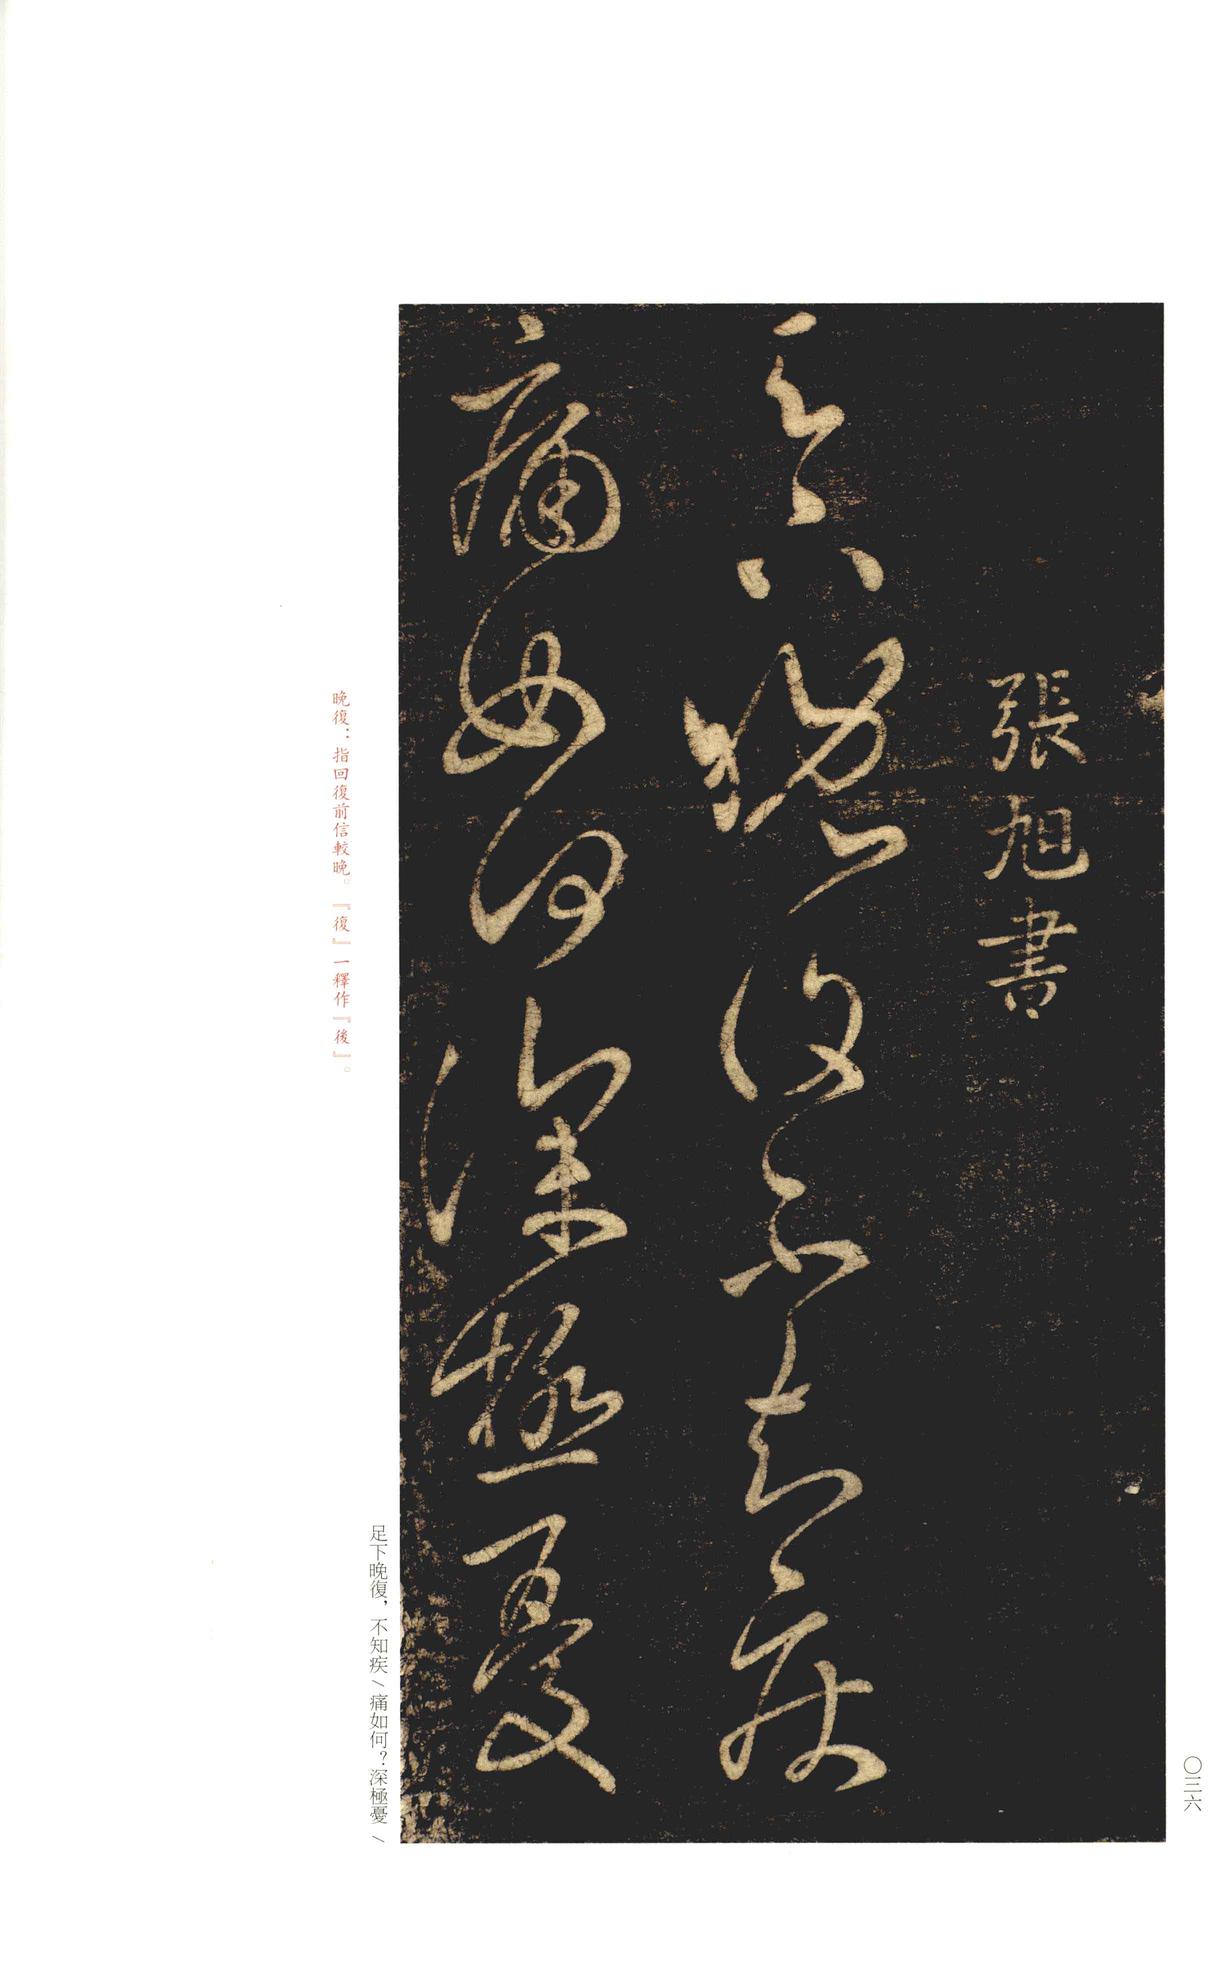 〇三六
張旭書
足下晚復不知疾
痛如何深極憂
足下晚復，不知疾\痛如何？深極憂\
晚復：指回復前信較晚。『復』一釋作『後』。